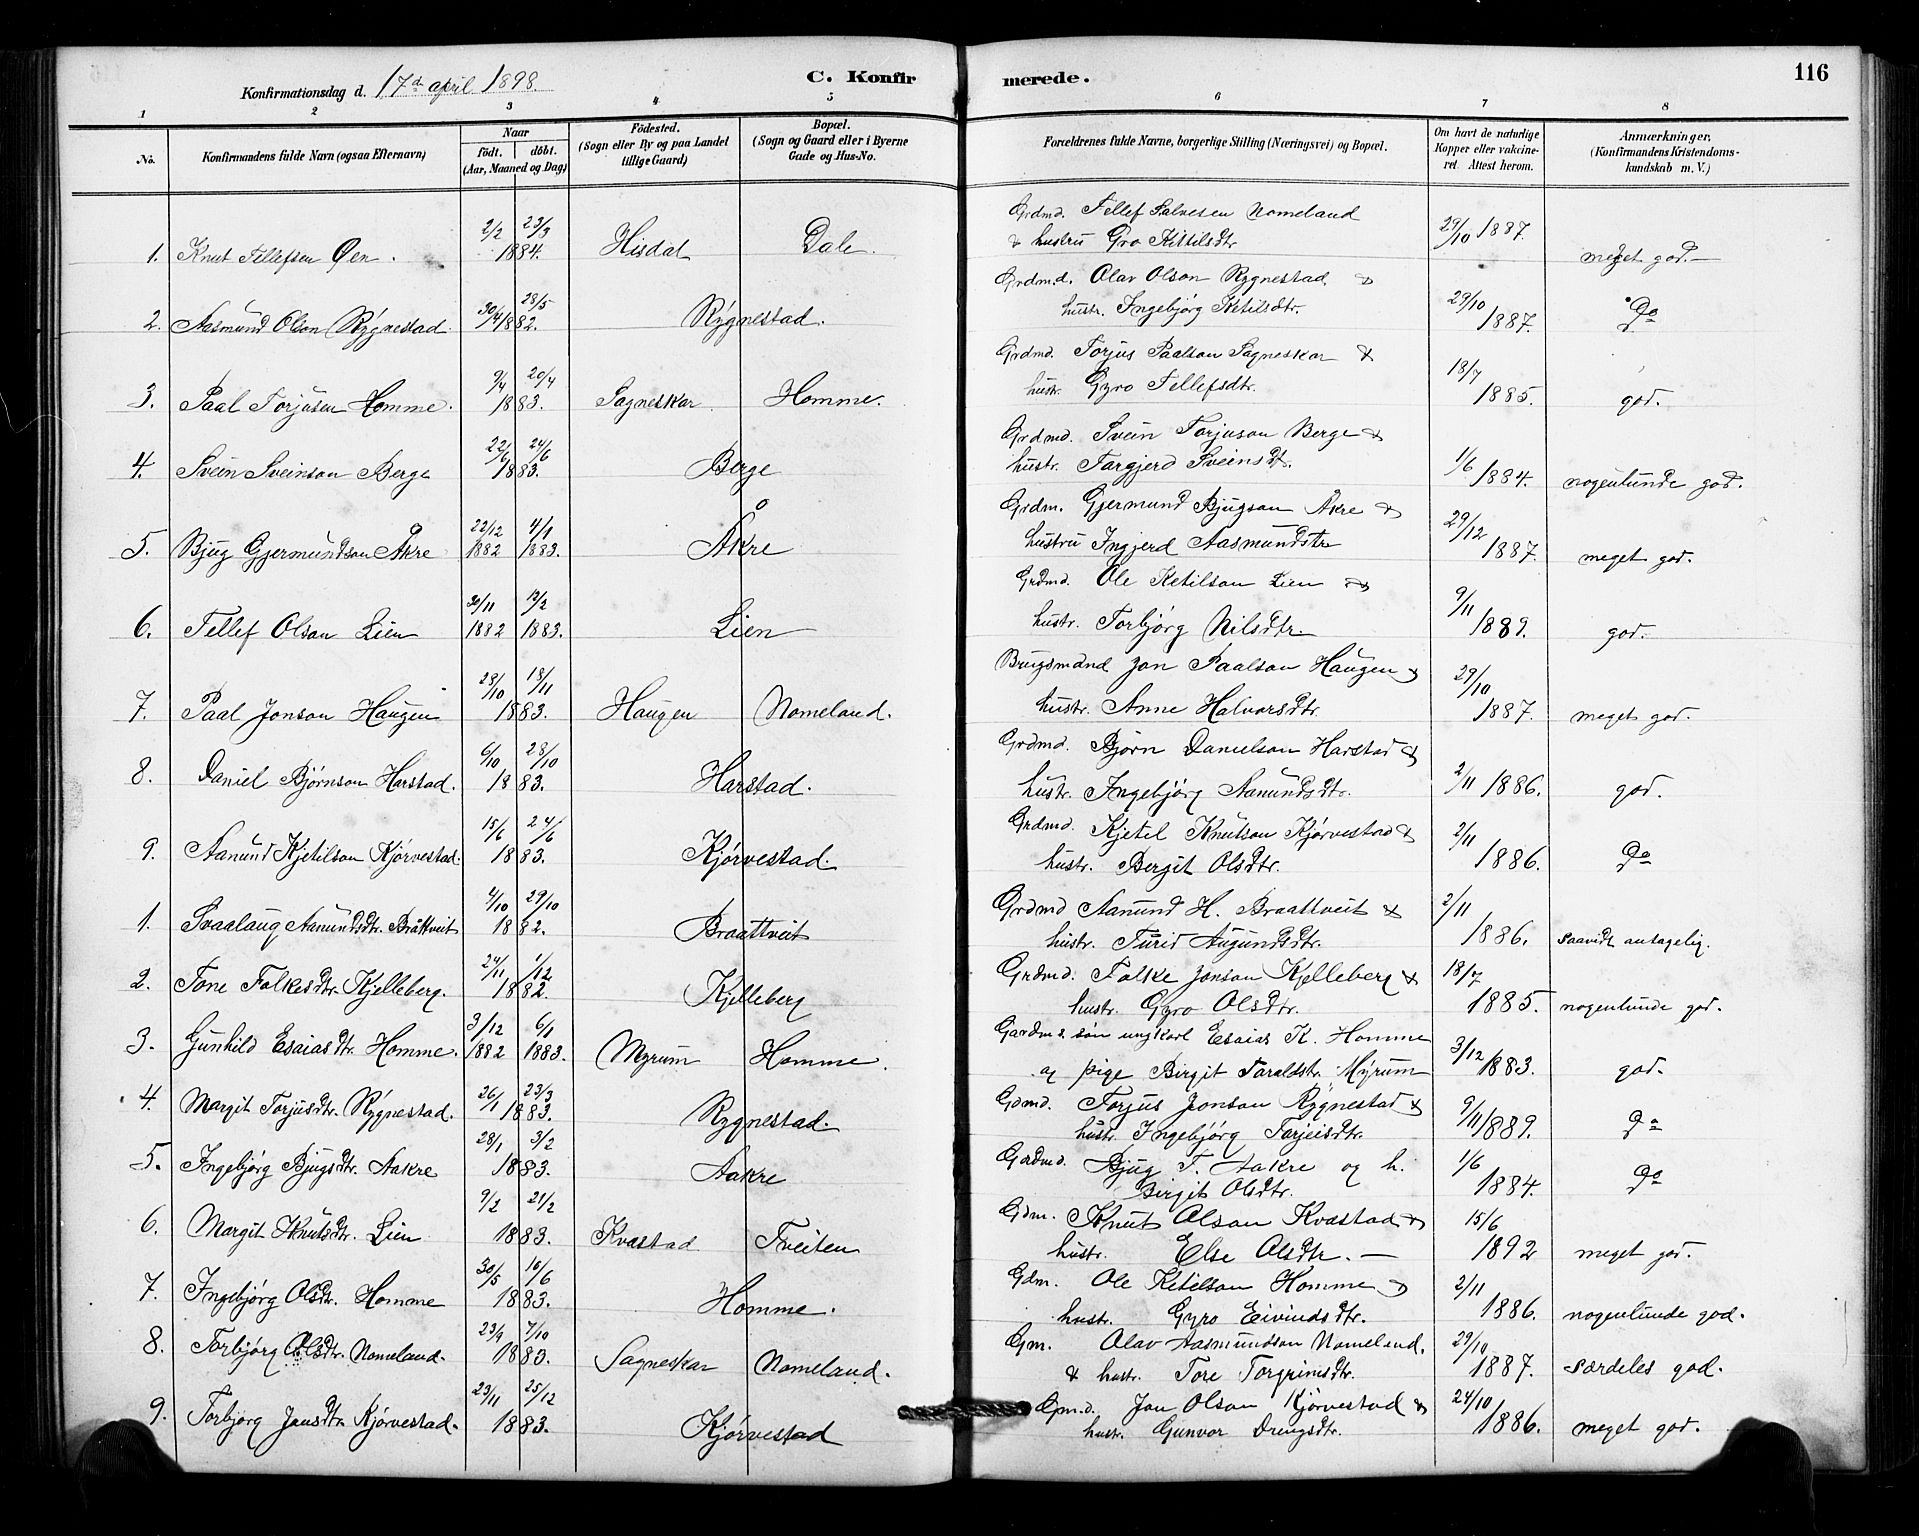 Konfirmationsdag d. 17de april 1898.
C. Konfirmerede.
116
1 2 3 4 5 6 7 8
No.
Konfirmandens fulde Navn (ogsaa Efternavn)
Naar
födt. döbt.
(Aar, Maaned og Dag)
Födested.
(Sogn eller By og paa Landet
tillige Gaard)
Bopæl.
(Sogn og Gaard eller i Byerne
Gade og Hus-No.
Forældrenes fulde Navne, borgerlige Stilling (Næringsvei) og Bopæl.
Om havt de naturlige
Kopper eller vakcine-
ret. Attest herom.
Anmærkninger.
(Konfirmandens Kristendoms-
kundskab m. V.)
Grdmd. Tellef Salvesen Nomeland
1. Knut Tellefsen Øen. 2/2 23/3 1884. Hisdal Dale. & hustru Gro Kittilsdtr 29/10 1887. meget god.—
Grdmd. Olav Olson Rygnestad &
2. Aasmund Olson Rygnestad. 30/4 28/5 1882. Rygnestad. hustr. Ingebjørg Ketilsdtr. 29/10 1887. Do
Grdmd. Torjus Paalson Sagneskar &
3. Paal Torjusen Homme. 9/4 20/4 1883. Sagneskar Homme. hustr. Gyro Tellefsdtr. 18/7 1885. god.
Grdmd. Svein Torjuson Berge &
4. Svein Sveinson Berge 22/6 24/6 1883. Berge hustr. Targjerd Sveinsdt. 1/6 1884. nogenlunde god.
Grdm. Gjermund Bjugson Åkre &
5. Bjug Gjermundson Åkre 22/12 1882 4/1 1883. Åkre hustru Ingjerd Aasmundstr 29/12 1887. meget god.
Grdmd. Ole Ketilson Lien &
6. Tellef Olson Lien 30/11 1882 12/2 1883. Lien hustr. Torbjørg Nilsdtr. 9/11 1889. god.
Brugsmand Jon Paalson Haugen &
7. Paal Jonson Haugen 28/10 18/11 1883. Haugen Nomeland. hustr. Anne Halvorsdtr. 29/10 1887. meget god.
Grdmd. Bjørn Danielson Harstad &
8. Daniel Bjørnson Harstad. 6/10 28/10 1883. Harstad. hustr. Ingebjørg Aanundsdt. 2/11 1886. god.
Grdmd. Kjetel Knutson Kjørvestad &
9. Aanund Kjetilson Kjørvestad. 15/6 24/6 1883. Kjørvestad. hustr. Bergit Olsdtr. 2/11 1886. Do
Grdmd Aanund H. Braattveit &
1. Svaalaug Aanundsdtr. Bråttveit 4/10 29/10 1882. Braattveit hustr. Turid Augundsdtr. 2/11 1886. saavidt antagelig.
Grdmd. Folke Jonson Kjelleberg &
2. Tone Folkesdtr. Kjelleberg. 24/11 1/12 1882. Kjelleberg hustr. Gyro Olsdtr. 18/7 1885. nogenlunde god.
Gardm.s søn ungkarl Esaias K. Homme
3. Gunhild Esaiasdtr Homme. 3/12 1882 6/1 1883. Myrum Homme. og pige Birgit Taraldstr. Myrum 3/12 1883. god.
Gdmd. Torjus Jonson Rygnestad &
4. Margit Torjusdtr. Rygnestad. 26/1 23/3 1883. Rygnestad. hustr. Ingebjørg Tarjeisdtr. 9/11 1889. Do
Gardmd. Bjug T. Aakre og h.
5. Ingebjørg Bjugsdtr. Aakre 28/1 3/2 1883. Aakre Birgit Olsdtr. 1/6 1884. Do
Gdm. Knut Olson Kvastad &
6. Margit Knutsdtr. Lien 9/2 21/2 1883. Kvastad Tveiten hustr. Else Olsdtr. — 15/6 1892 meget god.
Gdm. Ole Ketilson Homme &
7. Ingebjørg Olsdtr. Homme 30/5 10/6 1883. Homme. hustr. Gyro Eivindsdtr. 2/11 1886. nogenlunde god.
Gm. Olav Aasmundson Nomeland.
8. Torbjørg Olsdtr. Nomeland. 23/9 7/10 1883. Sagneskar Nomeland. & hustr. Tore Torgrimsdtr. 29/10 1887. særdeles god.
Gm.d. Jon Olson Kjørvestad &
9. Torbjørg Jonsdtr Kjørvestad. 23/11 25/12 1883. Kjørvestad hustr. Gunvor Drengsdtr. 24/10 1886. meget god.